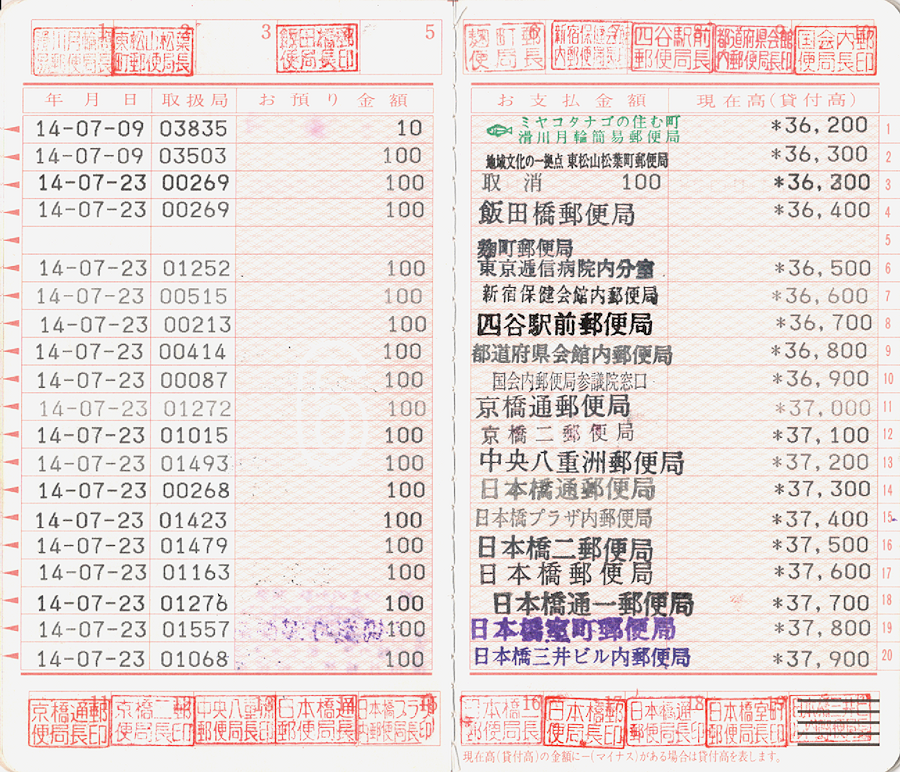 3 5
東松山松葉町郵便局長印
飯田橋郵便局長印
麹町郵便局長印
新宿保健会館内郵便局長印
四谷駅前郵便局長印
都道府県会館内郵便局長印
国会内郵便局長印
年月日 取扱局 お預り金額 お支払金額 現在高(貸付高)
ミヤコタナゴの住む町
14-07-09 03835 10 滑川月輪簡易郵便局 *36,200 1
14-07-09 03503 100 地域文化の一拠点 東松山松葉町郵便局 *36,300 2
14-07-23 00269 100 取消 100 *36,300 3
14-07-23 00269 100 飯田橋郵便局 *36,400 4
麹町郵便局 5
14-07-23 01252 100 東京逓信病院内分室 *36,500 6
14-07-23 00515 100 新宿保健会館内郵便局 *36,600 7
14-07-23 00213 100 四谷駅前郵便局 *36,700 8
14-07-23 00414 100 都道府県会館内郵便局 *36,800 9
14-07-23 00087 100 国会内郵便局参議院窓口 *36,900 10
14-07-23 01272 100 京橋通郵便局 *37,000 11
14-07-23 01015 100 京橋二郵便局 *37,100 12
14-07-23 01493 100 中央八重洲郵便局 *37,200 13
14-07-23 00268 100 日本橋通郵便局 *37,300 14
14-07-23 01423 100 日本橋プラザ内郵便局 *37,400 15
14-07-23 01479 100 日本橋二郵便局 *37,500 16
14-07-23 01163 100 日本橋郵便局 *37,600 17
14-07-23 01276 100 日本橋通一郵便局 *37,700 18
14-07-23 01557 100 日本橋室町郵便局 *37,800 19
14-07-23 01068 100 日本橋三井ビル内郵便局 *37,900 20
京橋通郵便局長印
京橋二郵便局長印
中央八重洲郵便局長印
日本橋通郵便局長印
日本橋プラザ内郵便局長印
日本橋二郵便局長印
日本橋郵便局長印
日本橋通一郵便局長印
日本橋室町郵便局長印
現在高(貸付高)の金額に−(マイナス)がある場合は貸付高を表します。